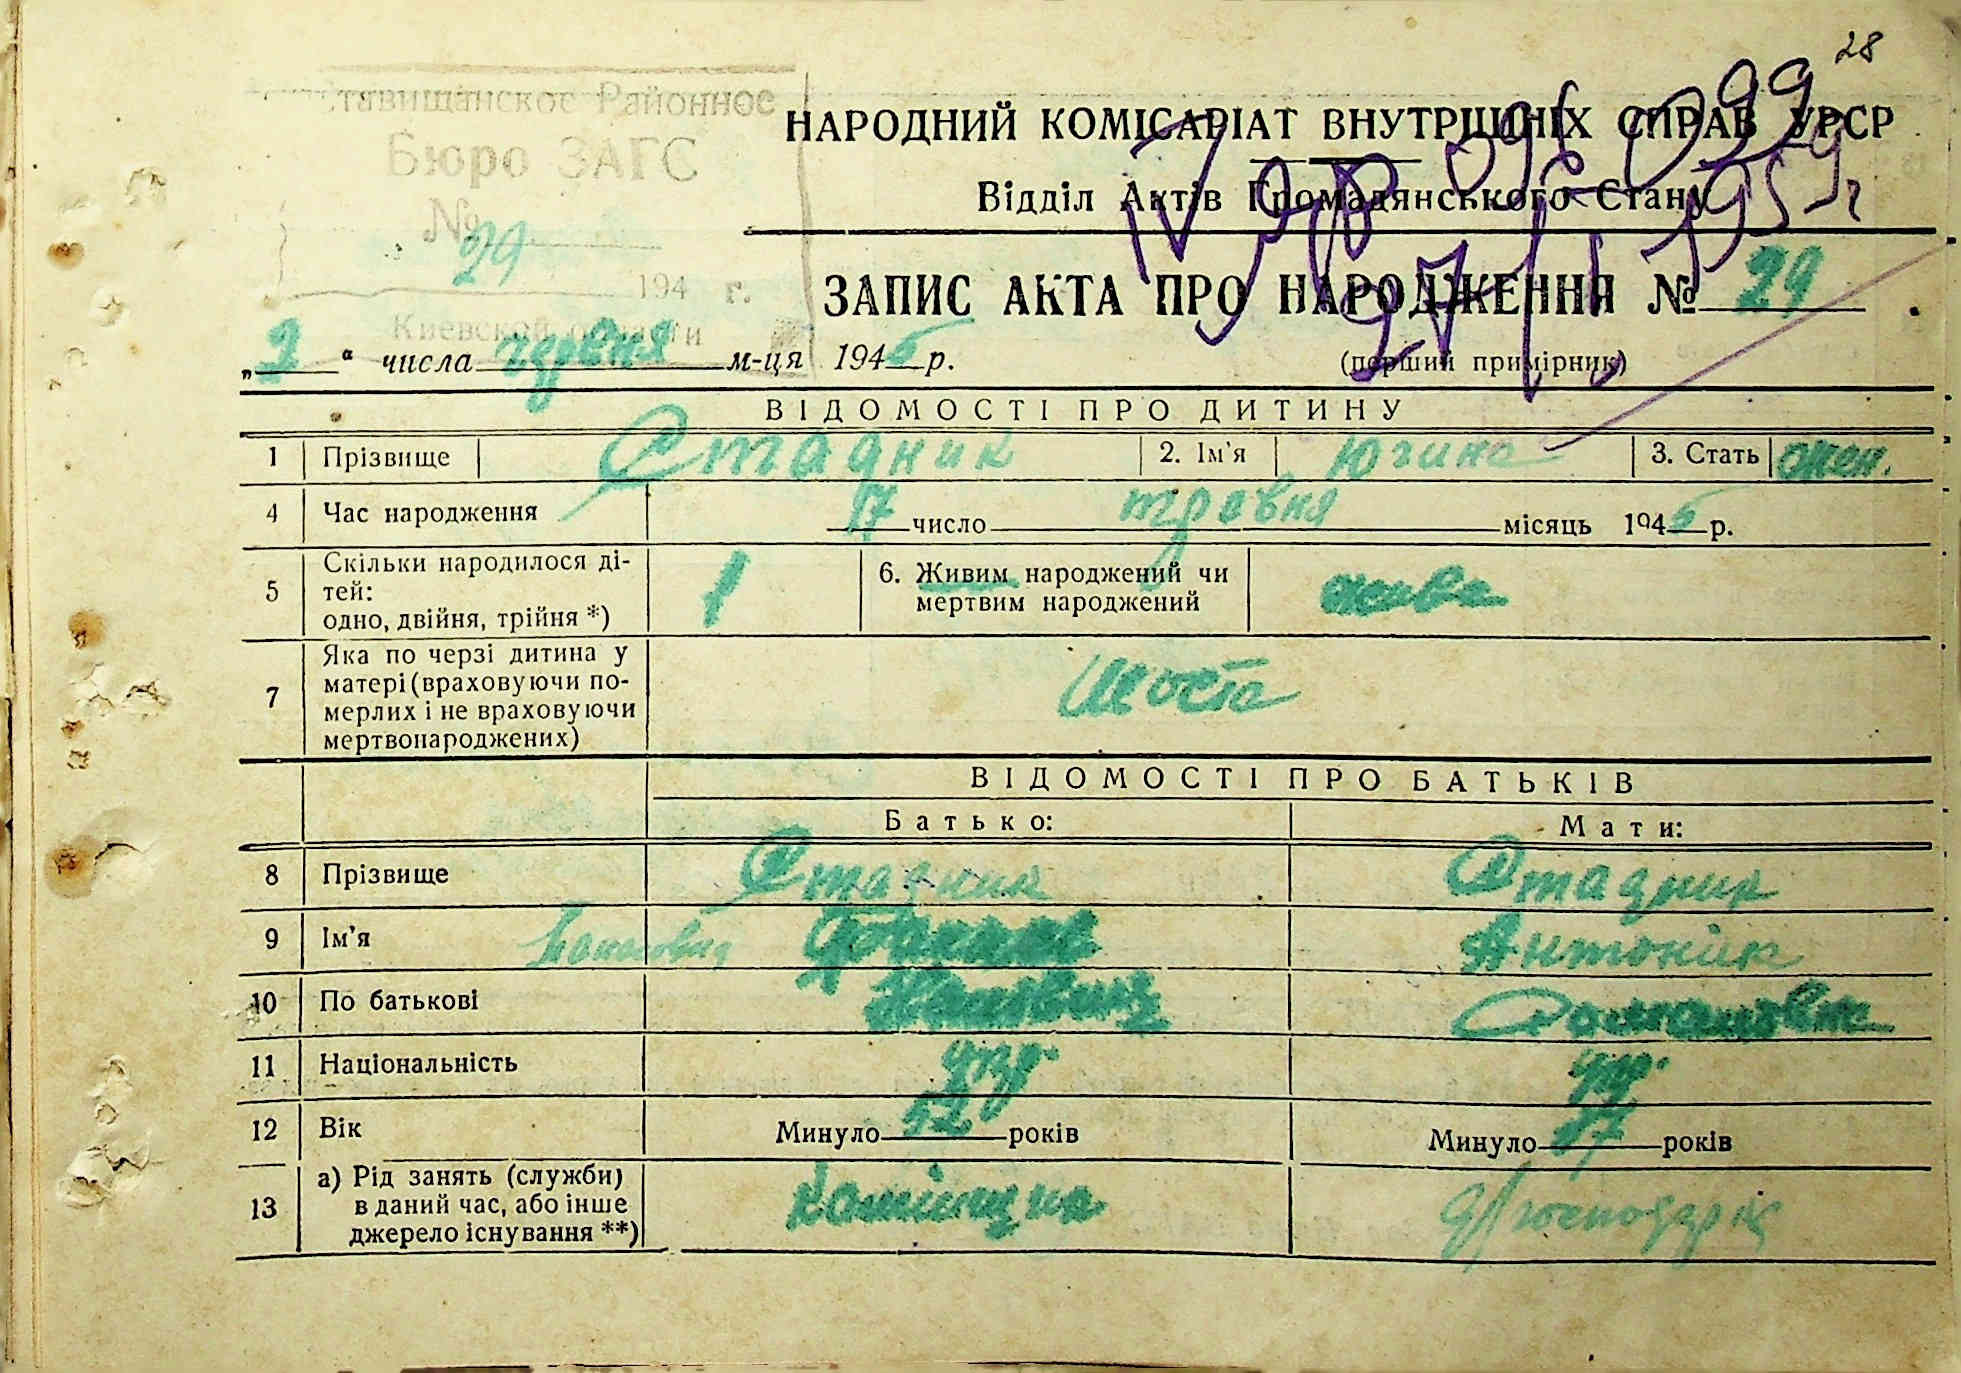 28
Ставищанское Районное
Бюро ЗАГС
№ 29
194 г.
Киевской области
НАРОДНИЙ КОМІСАРІАТ ВНУТРІШНІХ СПРАВ УРСР
Відділ Актів Громадянського Стану
ЗАПИС АКТА ПРО НАРОДЖЕННЯ № 29
„ 9 “ числа червня м-ця 1945 р.
(перший примірник)
ВІДОМОСТІ ПРО ДИТИНУ
1 Прізвище Стадник 2. Ім'я Югина 3. Стать жен.
4 Час народження 17 число травня місяць 1945 р.
5 Скільки народилося ді-
тей:
одно, двійня, трійня *) 1
6. Живим народжений чи
мертвим народжений жива
7 Яка по черзі дитина у
матері (враховуючи по-
мерлих і не враховуючи
мертвонароджених) шоста
ВІДОМОСТІ ПРО БАТЬКІВ
Батько: Мати:
8 Прізвище Стадник Стадник
9 Ім'я Антоніна
10 По батькові
11 Національність укр. укр.
12 Вік Минуло 52 років Минуло 37 років
13 а) Рід занять (служби)
в даний час, або інше
джерело існування **)